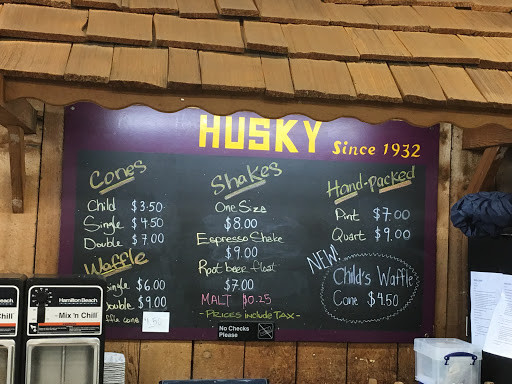 HUSKY Since 1932
Cones
Child $3.50
Single $4.50
Double $7.00
Waffle
Single $6.00
Double $9.00
Waffle cone
Shakes
One Size
$8.00
Espresso Shake
$9.00
Root beer float
$7.00
MALT $0.25
- PRICES INCLUDE TAX -
Hand-packed
Pint $7.00
Quart $9.00
NEW!
Child's Waffle
Cone $4.50
No Checks
Please
Beach
Chill
Hamilton Beach
Mix 'n Chill